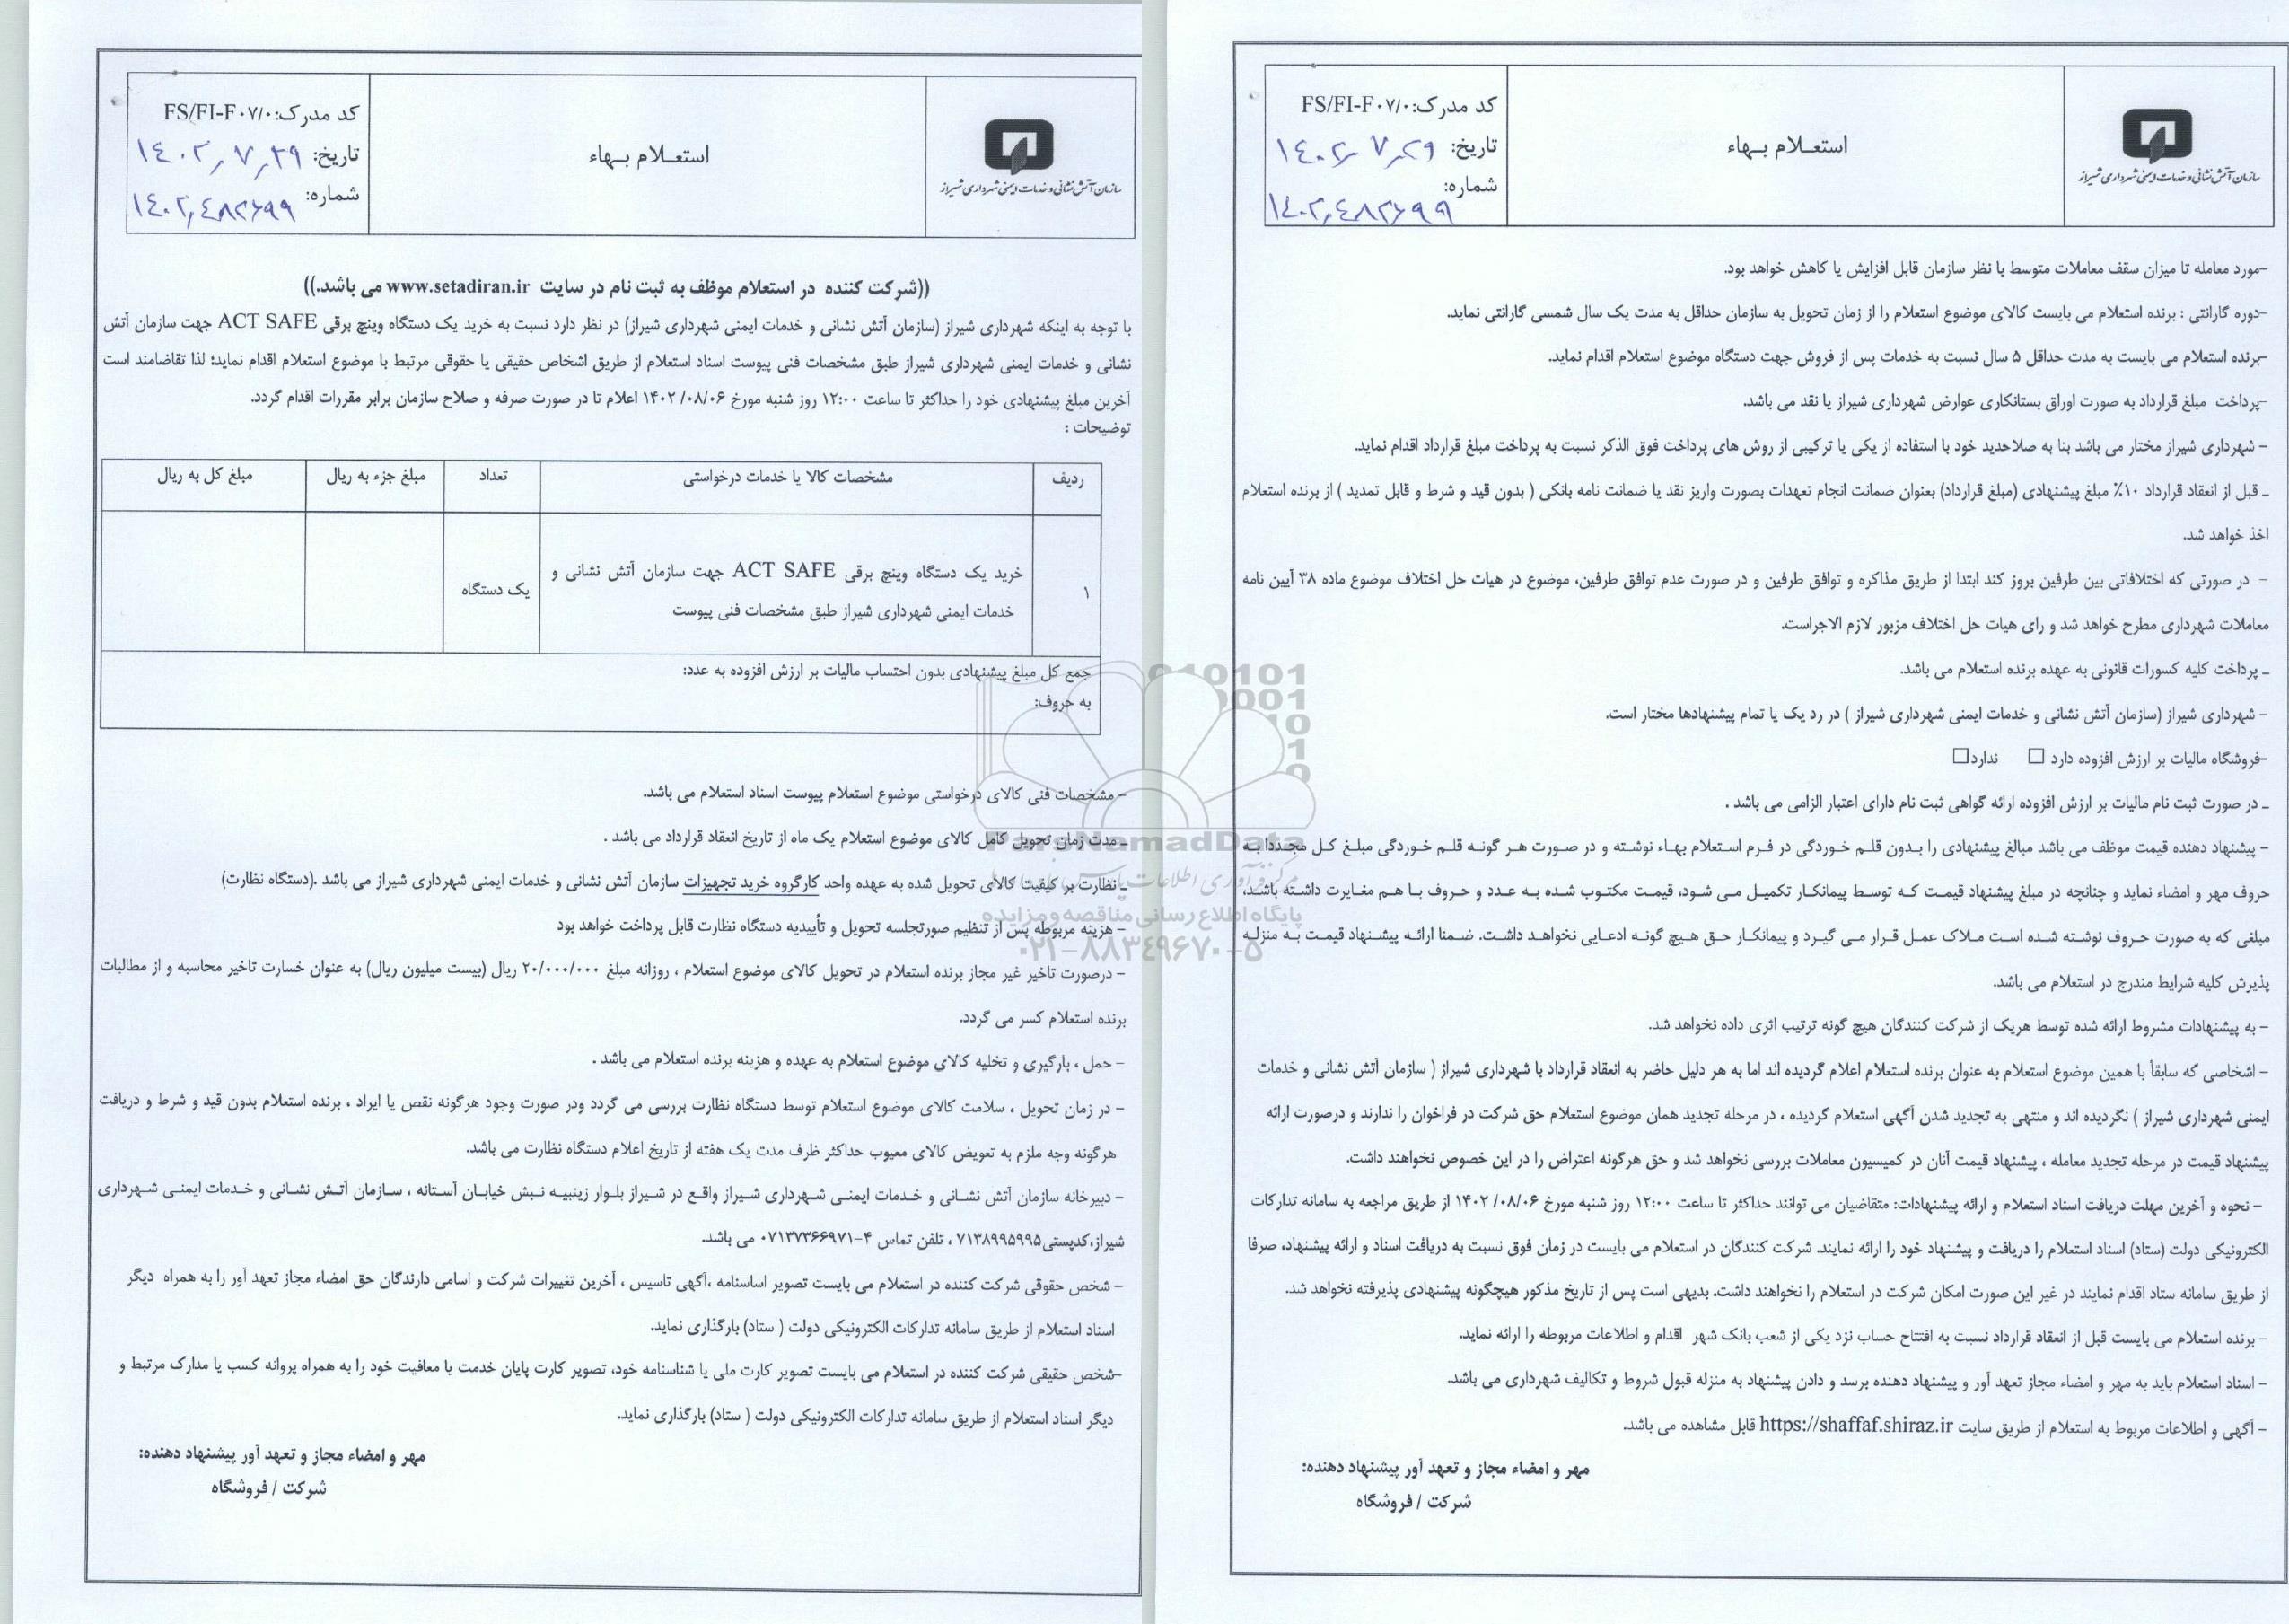 کد مدرک: FS/FI-F۰۷/۰
تاریخ: ۱۴۰۲٫۷٫۲۹
شماره: ۱۴۰۲٫۴۸۲۶۹۹
استعـلام بـهاء
سازمان آتش نشانی و خدمات ایمنی شهرداری شیراز
((شرکت کننده در استعلام موظف به ثبت نام در سایت www.setadiran.ir می باشد.))
با توجه به اینکه شهرداری شیراز (سازمان آتش نشانی و خدمات ایمنی شهرداری شیراز) در نظر دارد نسبت به خرید یک دستگاه وینچ برقی ACT SAFE جهت سازمان آتش
نشانی و خدمات ایمنی شهرداری شیراز طبق مشخصات فنی پیوست اسناد استعلام از طریق اشخاص حقیقی یا حقوقی مرتبط با موضوع استعلام اقدام نماید؛ لذا تقاضامند است
آخرین مبلغ پیشنهادی خود را حداکثر تا ساعت ۱۲:۰۰ روز شنبه مورخ ۱۴۰۲/۰۸/۰۶ اعلام تا در صورت صرفه و صلاح سازمان برابر مقررات اقدام گردد.
توضیحات :
ردیف مشخصات کالا یا خدمات درخواستی تعداد مبلغ جزء به ریال مبلغ کل به ریال
۱ خرید یک دستگاه وینچ برقی ACT SAFE جهت سازمان آتش نشانی و
خدمات ایمنی شهرداری شیراز طبق مشخصات فنی پیوست
یک دستگاه
جمع کل مبلغ پیشنهادی بدون احتساب مالیات بر ارزش افزوده به عدد:
به حروف:
- مشخصات فنی کالای درخواستی موضوع استعلام پیوست اسناد استعلام می باشد.
ـ مدت زمان تحویل کامل کالای موضوع استعلام یک ماه از تاریخ انعقاد قرارداد می باشد .
ـ نظارت بر کیفیت کالای تحویل شده به عهده واحد کارگروه خرید تجهیزات سازمان آتش نشانی و خدمات ایمنی شهرداری شیراز می باشد .(دستگاه نظارت)
- هزینه مربوطه پس از تنظیم صورتجلسه تحویل و تأییدیه دستگاه نظارت قابل پرداخت خواهد بود
- درصورت تاخیر غیر مجاز برنده استعلام در تحویل کالای موضوع استعلام ، روزانه مبلغ ۲۰/۰۰۰/۰۰۰ ریال (بیست میلیون ریال) به عنوان خسارت تاخیر محاسبه و از مطالبات
برنده استعلام کسر می گردد.
- حمل ، بارگیری و تخلیه کالای موضوع استعلام به عهده و هزینه برنده استعلام می باشد .
- در زمان تحویل ، سلامت کالای موضوع استعلام توسط دستگاه نظارت بررسی می گردد ودر صورت وجود هرگونه نقص یا ایراد ، برنده استعلام بدون قید و شرط و دریافت
هرگونه وجه ملزم به تعویض کالای معیوب حداکثر ظرف مدت یک هفته از تاریخ اعلام دستگاه نظارت می باشد.
- دبیرخانه سازمان آتش نشـانی و خـدمات ایمنـی شـهرداری شـیراز واقـع در شـیراز بلـوار زینبیـه نـبش خیابـان آسـتانه ، سـازمان آتـش نشـانی و خـدمات ایمنـی شـهرداری
شیراز،کدپستی۷۱۳۸۹۹۵۹۹۵ ، تلفن تماس ۴-۰۷۱۳۷۳۶۶۹۷۱ می باشد.
- شخص حقوقی شرکت کننده در استعلام می بایست تصویر اساسنامه ،آگهی تاسیس ، آخرین تغییرات شرکت و اسامی دارندگان حق امضاء مجاز تعهد آور را به همراه دیگر
اسناد استعلام از طریق سامانه تدارکات الکترونیکی دولت ( ستاد) بارگذاری نماید.
-شخص حقیقی شرکت کننده در استعلام می بایست تصویر کارت ملی یا شناسنامه خود، تصویر کارت پایان خدمت یا معافیت خود را به همراه پروانه کسب یا مدارک مرتبط و
دیگر اسناد استعلام از طریق سامانه تدارکات الکترونیکی دولت ( ستاد) بارگذاری نماید.
مهر و امضاء مجاز و تعهد آور پیشنهاد دهنده:
شرکت / فروشگاه
کد مدرک: FS/FI-F۰۷/۰
تاریخ: ۱۴۰۲٫۷٫۲۹
شماره: ۱۴۰۲٫۴۸۲۶۹۹
استعـلام بـهاء
سازمان آتش نشانی و خدمات ایمنی شهرداری شیراز
-مورد معامله تا میزان سقف معاملات متوسط با نظر سازمان قابل افزایش یا کاهش خواهد بود.
-دوره گارانتی : برنده استعلام می بایست کالای موضوع استعلام را از زمان تحویل به سازمان حداقل به مدت یک سال شمسی گارانتی نماید.
-برنده استعلام می بایست به مدت حداقل ۵ سال نسبت به خدمات پس از فروش جهت دستگاه موضوع استعلام اقدام نماید.
-پرداخت مبلغ قرارداد به صورت اوراق بستانکاری عوارض شهرداری شیراز یا نقد می باشد.
- شهرداری شیراز مختار می باشد بنا به صلاحدید خود با استفاده از یکی یا ترکیبی از روش های پرداخت فوق الذکر نسبت به پرداخت مبلغ قرارداد اقدام نماید.
ـ قبل از انعقاد قرارداد ۱۰٪ مبلغ پیشنهادی (مبلغ قرارداد) بعنوان ضمانت انجام تعهدات بصورت واریز نقد یا ضمانت نامه بانکی ( بدون قید و شرط و قابل تمدید ) از برنده استعلام
اخذ خواهد شد.
- در صورتی که اختلافاتی بین طرفین بروز کند ابتدا از طریق مذاکره و توافق طرفین و در صورت عدم توافق طرفین، موضوع در هیات حل اختلاف موضوع ماده ۳۸ آیین نامه
معاملات شهرداری مطرح خواهد شد و رای هیات حل اختلاف مزبور لازم الاجراست.
ـ پرداخت کلیه کسورات قانونی به عهده برنده استعلام می باشد.
- شهرداری شیراز (سازمان آتش نشانی و خدمات ایمنی شهرداری شیراز ) در رد یک یا تمام پیشنهادها مختار است.
-فروشگاه مالیات بر ارزش افزوده دارد ☐ ندارد☐
ـ در صورت ثبت نام مالیات بر ارزش افزوده ارائه گواهی ثبت نام دارای اعتبار الزامی می باشد .
- پیشنهاد دهنده قیمت موظف می باشد مبالغ پیشنهادی را بـدون قلـم خـوردگی در فـرم اسـتعلام بهـاء نوشـته و در صـورت هـر گونـه قلـم خـوردگی مبلـغ کـل مجـددا بـه
حروف مهر و امضاء نماید و چنانچه در مبلغ پیشنهاد قیمـت کـه توسـط پیمانکـار تکمیـل مـی شـود، قیمـت مکتـوب شـده بـه عـدد و حـروف بـا هـم مغـایرت داشـته باشـد،
مبلغی که به صورت حـروف نوشـته شـده اسـت مـلاک عمـل قـرار مـی گیـرد و پیمانکـار حـق هـیچ گونـه ادعـایی نخواهـد داشـت. ضـمنا ارائـه پیشـنهاد قیمـت بـه منزلـه
پذیرش کلیه شرایط مندرج در استعلام می باشد.
- به پیشنهادات مشروط ارائه شده توسط هریک از شرکت کنندگان هیچ گونه ترتیب اثری داده نخواهد شد.
- اشخاصی که سابقاً با همین موضوع استعلام به عنوان برنده استعلام اعلام گردیده اند اما به هر دلیل حاضر به انعقاد قرارداد با شهرداری شیراز ( سازمان آتش نشانی و خدمات
ایمنی شهرداری شیراز ) نگردیده اند و منتهی به تجدید شدن آگهی استعلام گردیده ، در مرحله تجدید همان موضوع استعلام حق شرکت در فراخوان را ندارند و درصورت ارائه
پیشنهاد قیمت در مرحله تجدید معامله ، پیشنهاد قیمت آنان در کمیسیون معاملات بررسی نخواهد شد و حق هرگونه اعتراض را در این خصوص نخواهند داشت.
- نحوه و آخرین مهلت دریافت اسناد استعلام و ارائه پیشنهادات: متقاضیان می توانند حداکثر تا ساعت ۱۲:۰۰ روز شنبه مورخ ۱۴۰۲/۰۸/۰۶ از طریق مراجعه به سامانه تدارکات
الکترونیکی دولت (ستاد) اسناد استعلام را دریافت و پیشنهاد خود را ارائه نمایند. شرکت کنندگان در استعلام می بایست در زمان فوق نسبت به دریافت اسناد و ارائه پیشنهاد، صرفا
از طریق سامانه ستاد اقدام نمایند در غیر این صورت امکان شرکت در استعلام را نخواهند داشت. بدیهی است پس از تاریخ مذکور هیچگونه پیشنهادی پذیرفته نخواهد شد.
- برنده استعلام می بایست قبل از انعقاد قرارداد نسبت به افتتاح حساب نزد یکی از شعب بانک شهر اقدام و اطلاعات مربوطه را ارائه نماید.
- اسناد استعلام باید به مهر و امضاء مجاز تعهد آور و پیشنهاد دهنده برسد و دادن پیشنهاد به منزله قبول شروط و تکالیف شهرداری می باشد.
- آگهی و اطلاعات مربوط به استعلام از طریق سایت https://shaffaf.shiraz.ir قابل مشاهده می باشد.
مهر و امضاء مجاز و تعهد آور پیشنهاد دهنده:
شرکت / فروشگاه
ParsNamadData
پایگاه اطلاع رسانی مناقصه و مزایده
۰۲۱-۸۸۳۴۹۶۷۰-۵